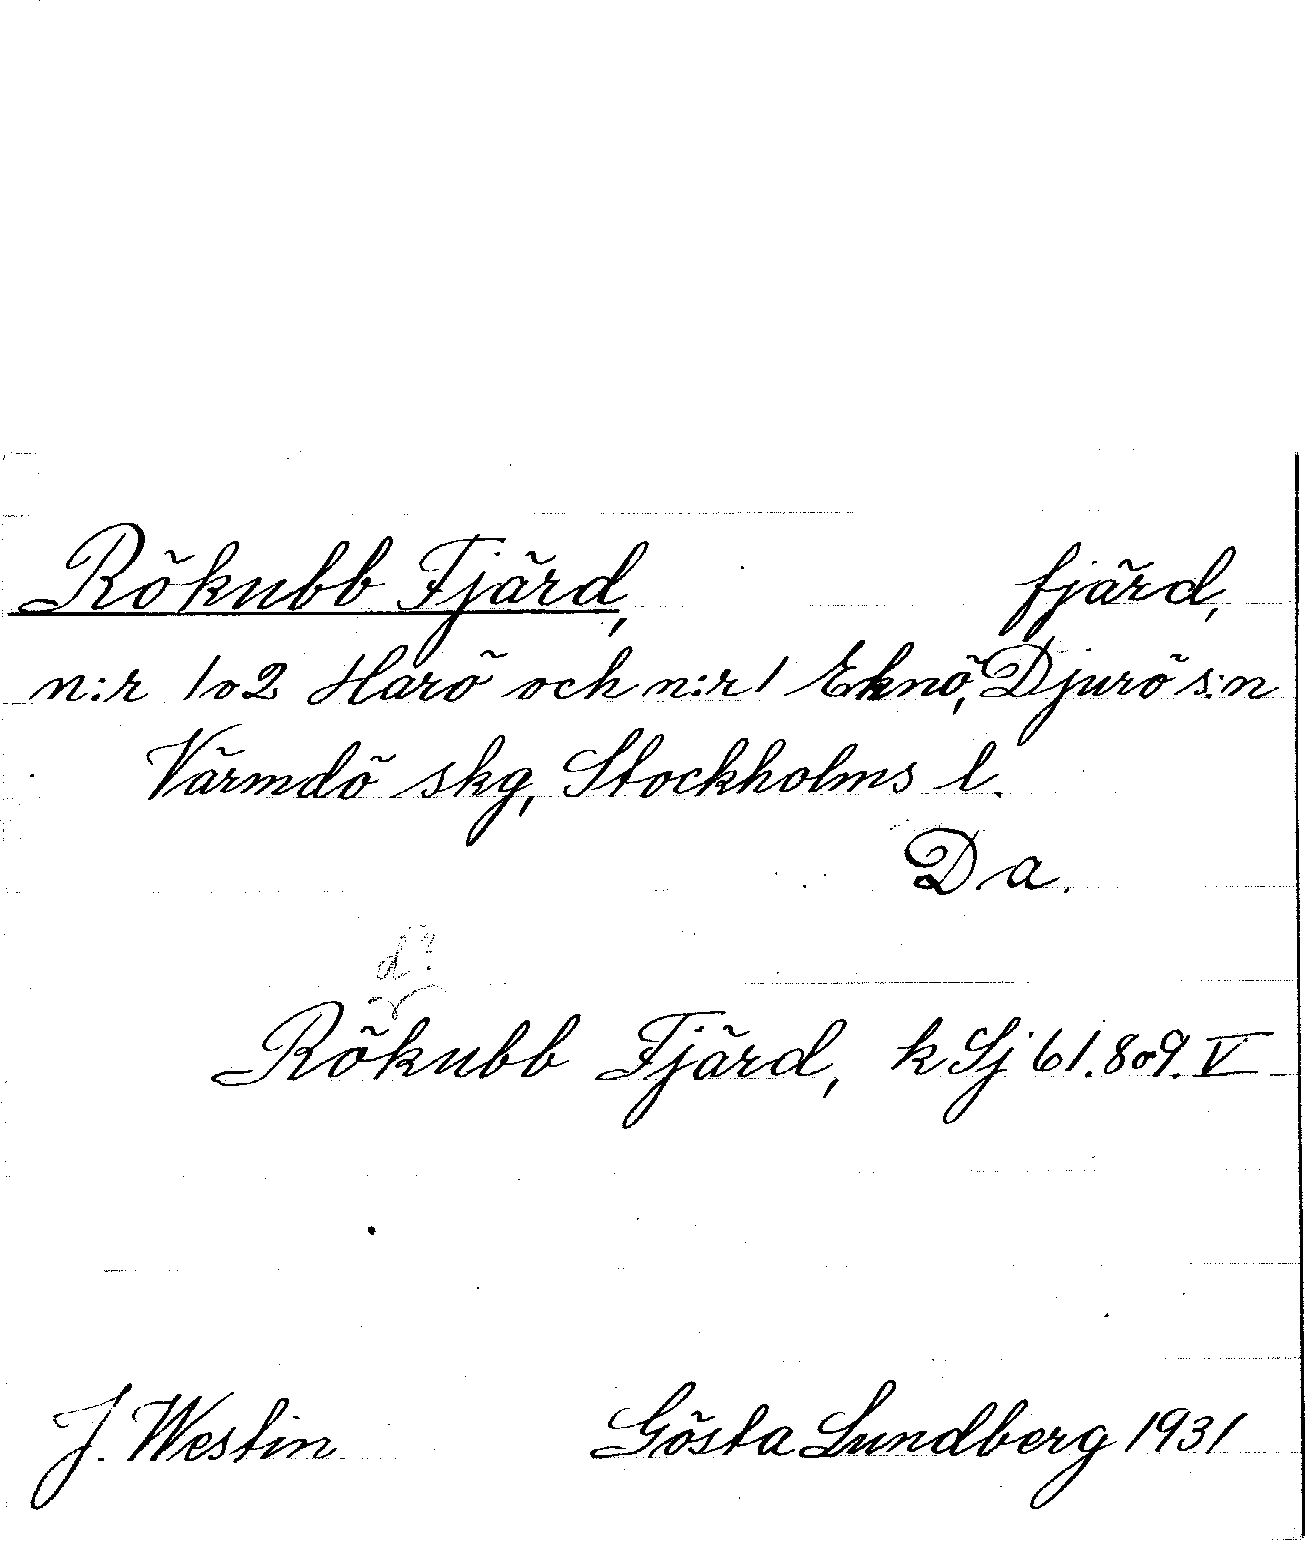 Rökubb Fjärd, fjärd,
n:r 1 o 2 Harö och n:r 1 Eknö, Djurö s:n
Värmdö skg, Stockholms l.
Da.
d?
Rökubb Fjärd, k Sj 61. 8 o 9. V
J. Westin Gösta Lundberg 1931